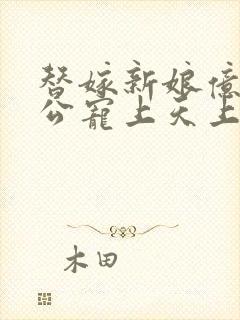 替嫁新娘億
公寵上天上
木田